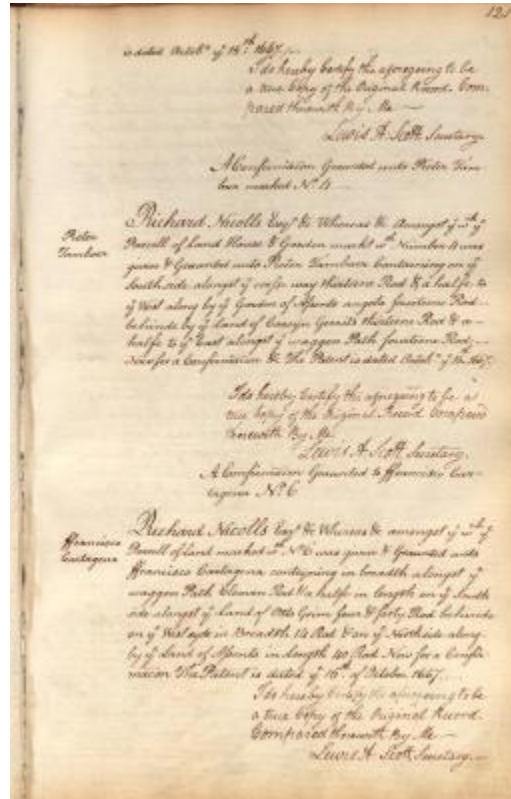 121
is dated Octobr. ye 15th. 1667.
I do hereby Certify the aforegoing to be
a true Copy of the Original Record. Com-
pared therewith By Me —
Lewis A. Scott Secretary
A Confirmation Graunted unto Pieter Tam-
boer marked No. 4
Pieter
Tamboer
Richard Nicolls Esqr. &c Whereas &c Amongst ye wth. ye
Parcell of Land House & Garden markt wth. Number 4 was
given & Graunted unto Pieter Tamboer Containing on ye
South side alongst ye waggon way thirteene Rod & a halfe, to
ye West along by ye Garden of Assento angola fourteene Rod
behinde by ye Land of Gerrits thirteene Rod & a
halfe to ye East alongst ye waggon Path fourteene Rod,
Now for a Confirmation &c The Patent is dated Octobr. ye 15th. 1667.
I do hereby Certify the aforegoing to be a
true Copy of the Original Record Compared
therewith By Me
Lewis A. Scott Secretary.
A Confirmation Graunted to Ffrancisco Car-
tagena No. 6
Ffrancisco
Cartagena
Richard Nicolls Esqr. &c Whereas &c amongst ye wth. ye
Parcell of land marked wth. No. 6 was given & Graunted unto
Ffrancisco Cartagena containing in breadth alongst ye
waggon Path Eleaven Rod & a halfe in length on ye South
side alongst ye Land of Otto Grim four & forty Rod behinde
on ye West syde in Breadth 14 Rod & on ye North side along
by ye Land of Assento in Length 40 Rod. Now for a Confir-
macon The Patent is dated ye 16th. of October 1667.
I do hereby Certify the aforegoing to be
a true Copy of the Original Record.
Compared therewith By Me
Lewis A. Scott Secretary.